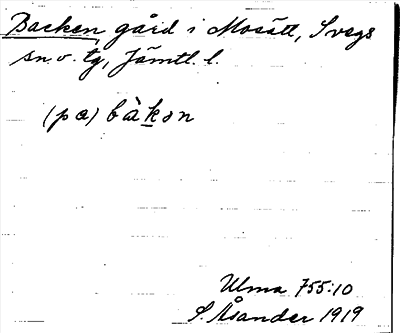 Backen gård i Mosätt, Svegs
sn. o. tg, Jämtl. l.
(pα) bàkən
Ulma 755:10
S. Åsander 1919